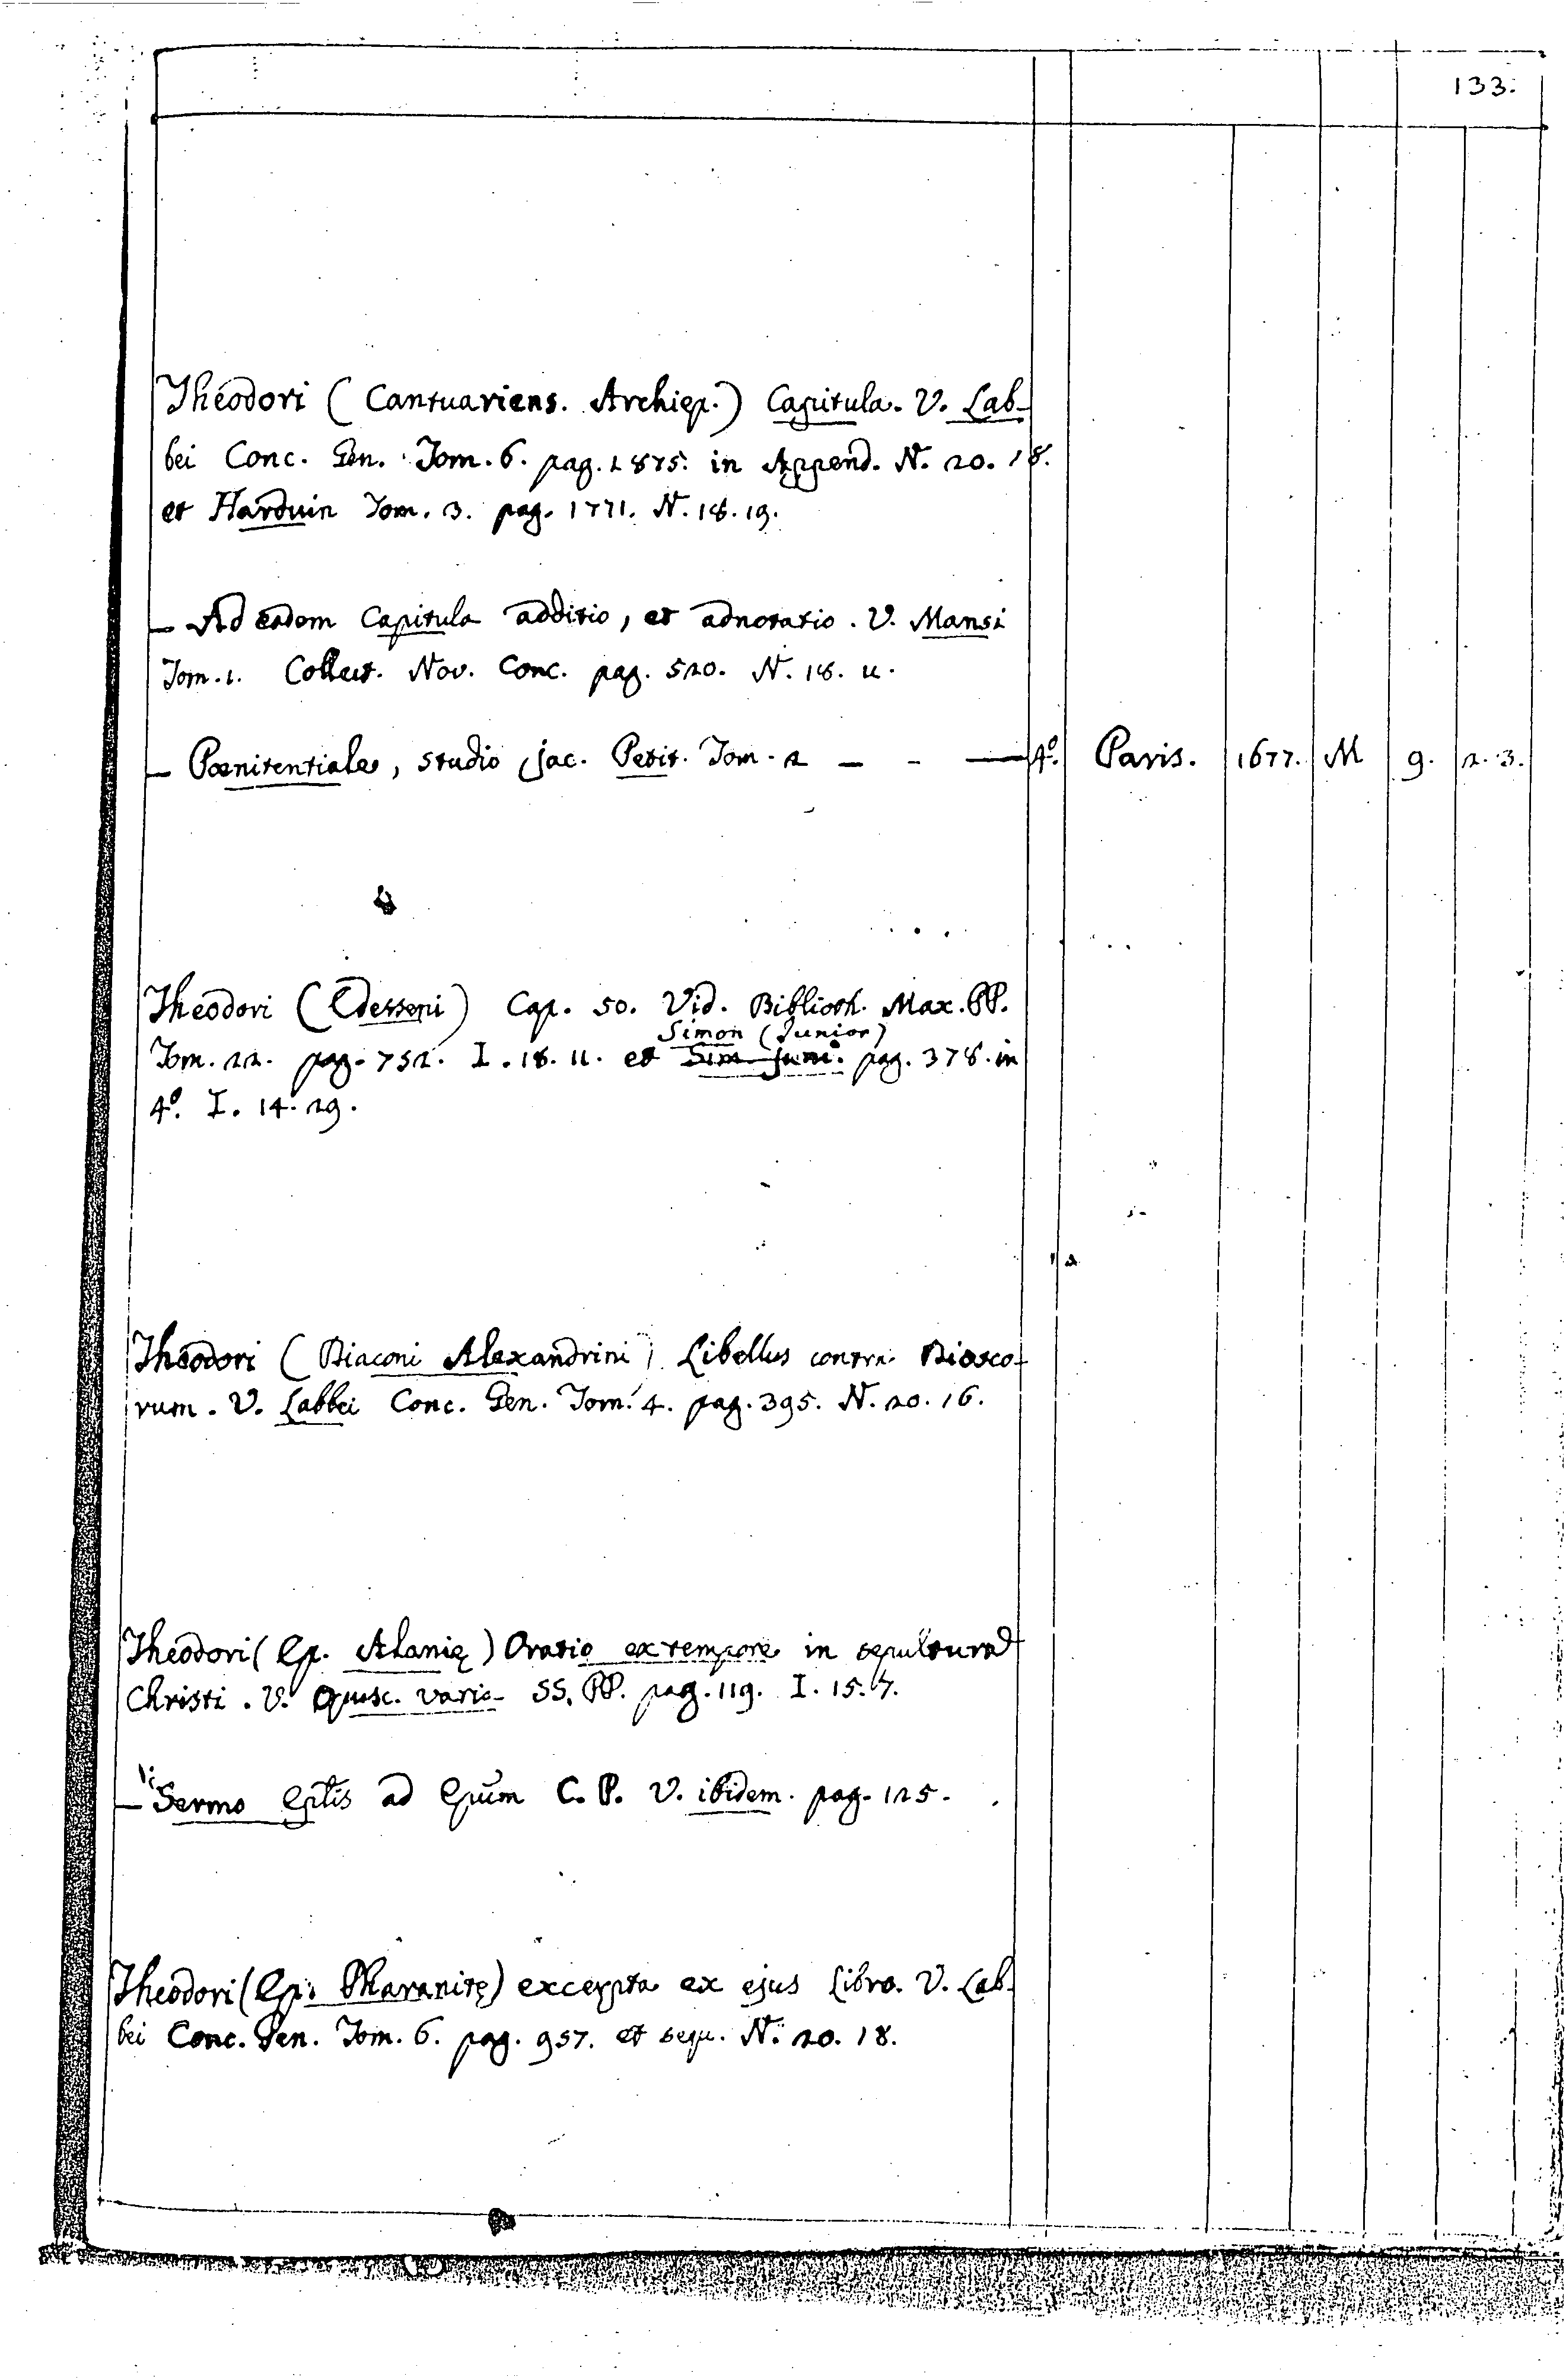 133.
Theodori (Cantuariens. Archiep.) Capitula. V. Lab-
bei Conc. Gen. Tom. 6. pag. 1875. in Append. N. 20. 18.
et Harduin Tom. 3. pag. 1771. N. 18. 19.
— Ad eadem Capitula additio, et adnotatio. V. Mansi
Tom. 1. Collect. Nov. Conc. pag. 520. N. 18. 11.
— Pœnitentiale, studio Jac. Petit. Tom. 2 — - — 4º. Paris. 1677. M 9. 2. 3.
Theodori (Edesseni) Cap. 50. Vid. Biblioth. Max. PP.
Simon (Junior)
Tom. 22. pag. 752. I. 18. 11. et Sim. Juni. pag. 378. in
4º. I. 14. 29.
Theodori (Diaconi Alexandrini) Libellus contra Diosco-
rum. V. Labbei Conc. Gen. Tom. 4. pag. 395. N. 20. 16.
Theodori (Ep. Alanię) Oratio extempore in sepultura
Christi. V. Opusc. varia SS. PP. pag. 119. I. 15. 7.
— Sermo Eplis ad Epum C. P. V. ibidem. pag. 125.
Theodori (Ep. Pharanitę) excerpta ex ejus Libro. V. Lab-
bei Conc. Gen. Tom. 6. pag. 957. et sequ. N. 20. 18.